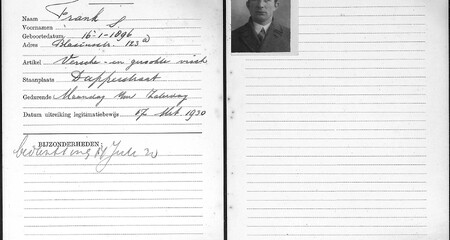 Naam Frank S.
Voornamen
Geboortedatum 16-1-1896
Adres Blasiusstr. 123 a)
Artikel Versche en gerookte visch
Staanplaats Dapperstraat
Gedurende Maandag t/m Zaterdag
Datum uitreiking legitimatiebewijs 17 1930
BIJZONDERHEDEN:
Juli